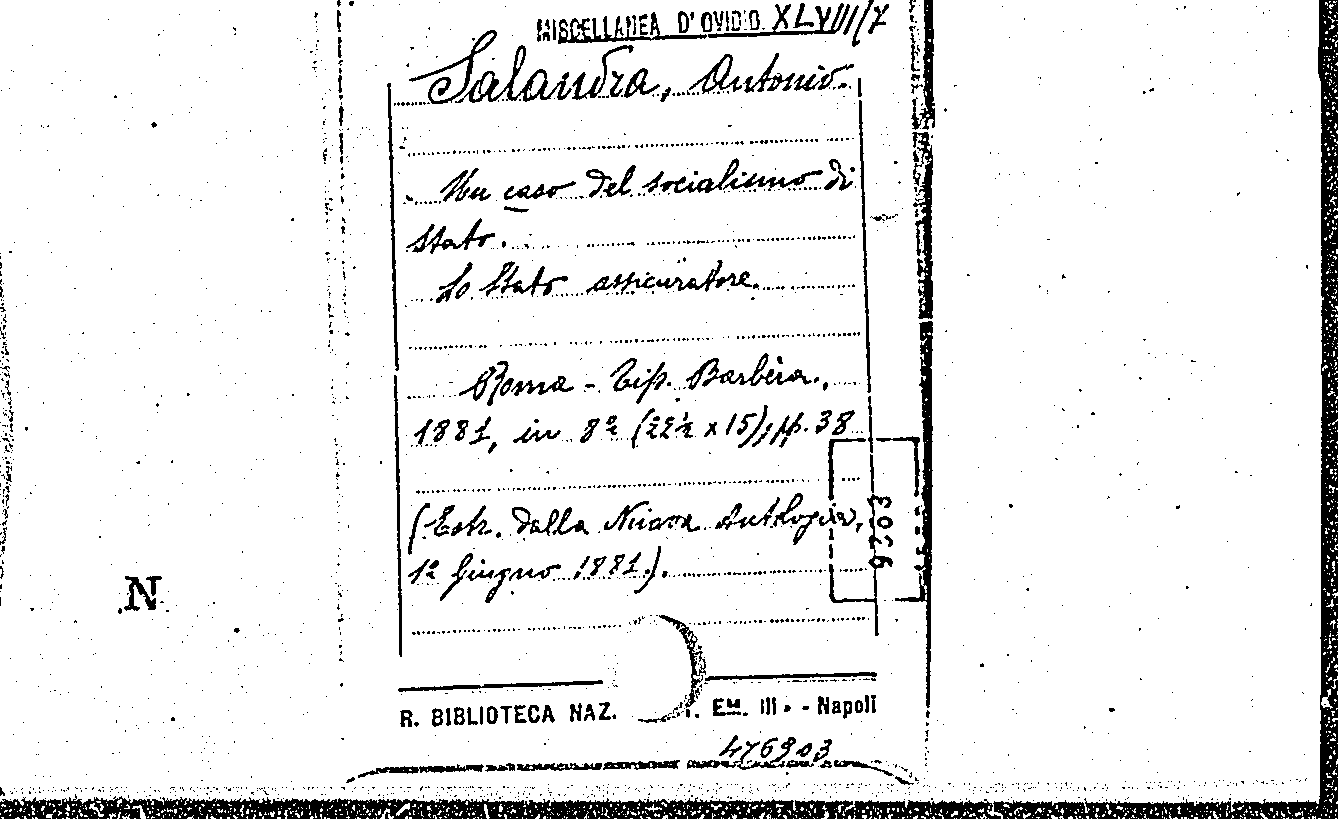 MISCELLANEA D'OVIDIO XLVIII/7
Salandra, Antonio.
Un caso del socialismo di
Stato.
Lo Stato assicuratore.
Roma - Tip. Barbèra.,
1881, in 8º (22½ x 15), pp. 38
(Estr. dalla Nuova Antologia,
1º Giugno 1881.).
9303
N
R. BIBLIOTECA NAZ. . EM. III - - Napoli
476903